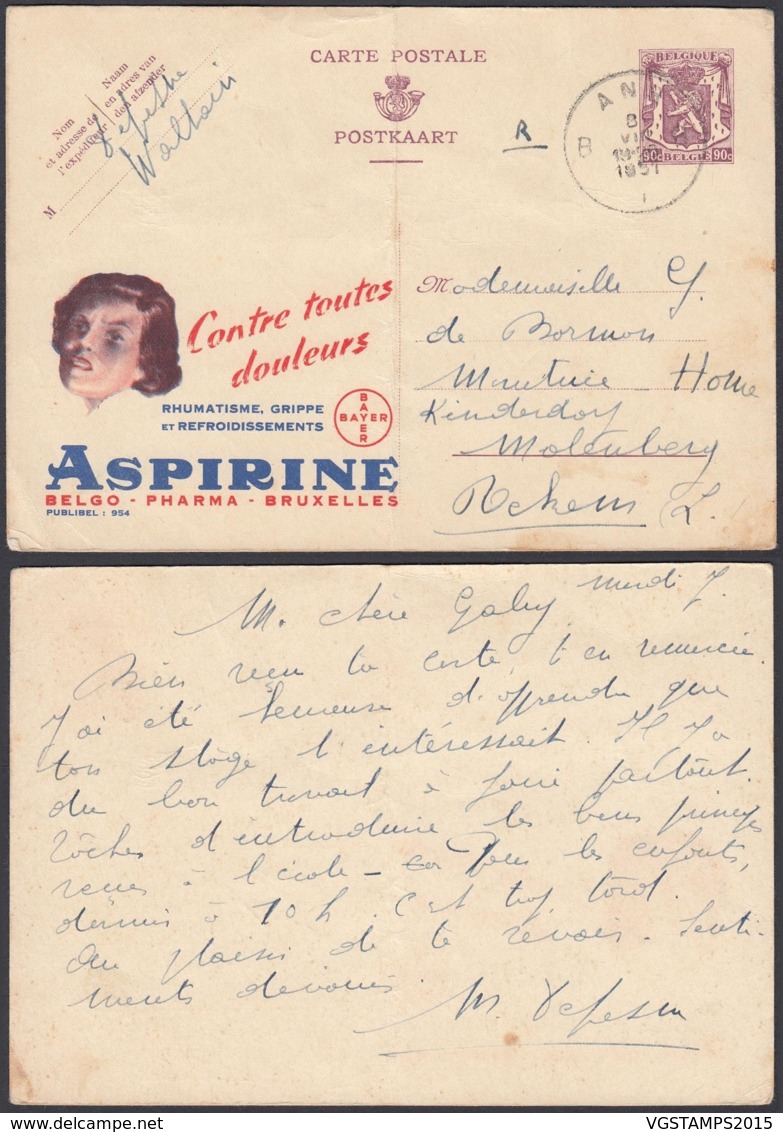 CARTE POSTALE
POSTKAART
Nom
et adresse de
l'expéditeur
Naam
en adres van
den afzender
M
Waltain
R
BELGIQUE
90c BELGIE 90c
AN
B
8
VI
1951
Contre toutes
douleurs
RHUMATISME, GRIPPE
ET REFROIDISSEMENTS
BAYER
BAYER
ASPIRINE
BELGO - PHARMA - BRUXELLES
PUBLIBEL : 954
Mademoiselle G.
de Bormon
Home
Kinderdorf
Molenberg
Rekem L.
M. chère Gaby
Bien reçu ta carte, t'en remercie.
J'ai été heureuse d'apprendre que
ton stage t'intéressait. Il y a
du bon travail à faire partout.
Tâches d'introduire les bons principes
à l'école - les enfants,
à 10 h. C'est trop tard.
Au plaisir de te revoir. Senti-
ments dévoués.
M.
VGSTAMPS2015